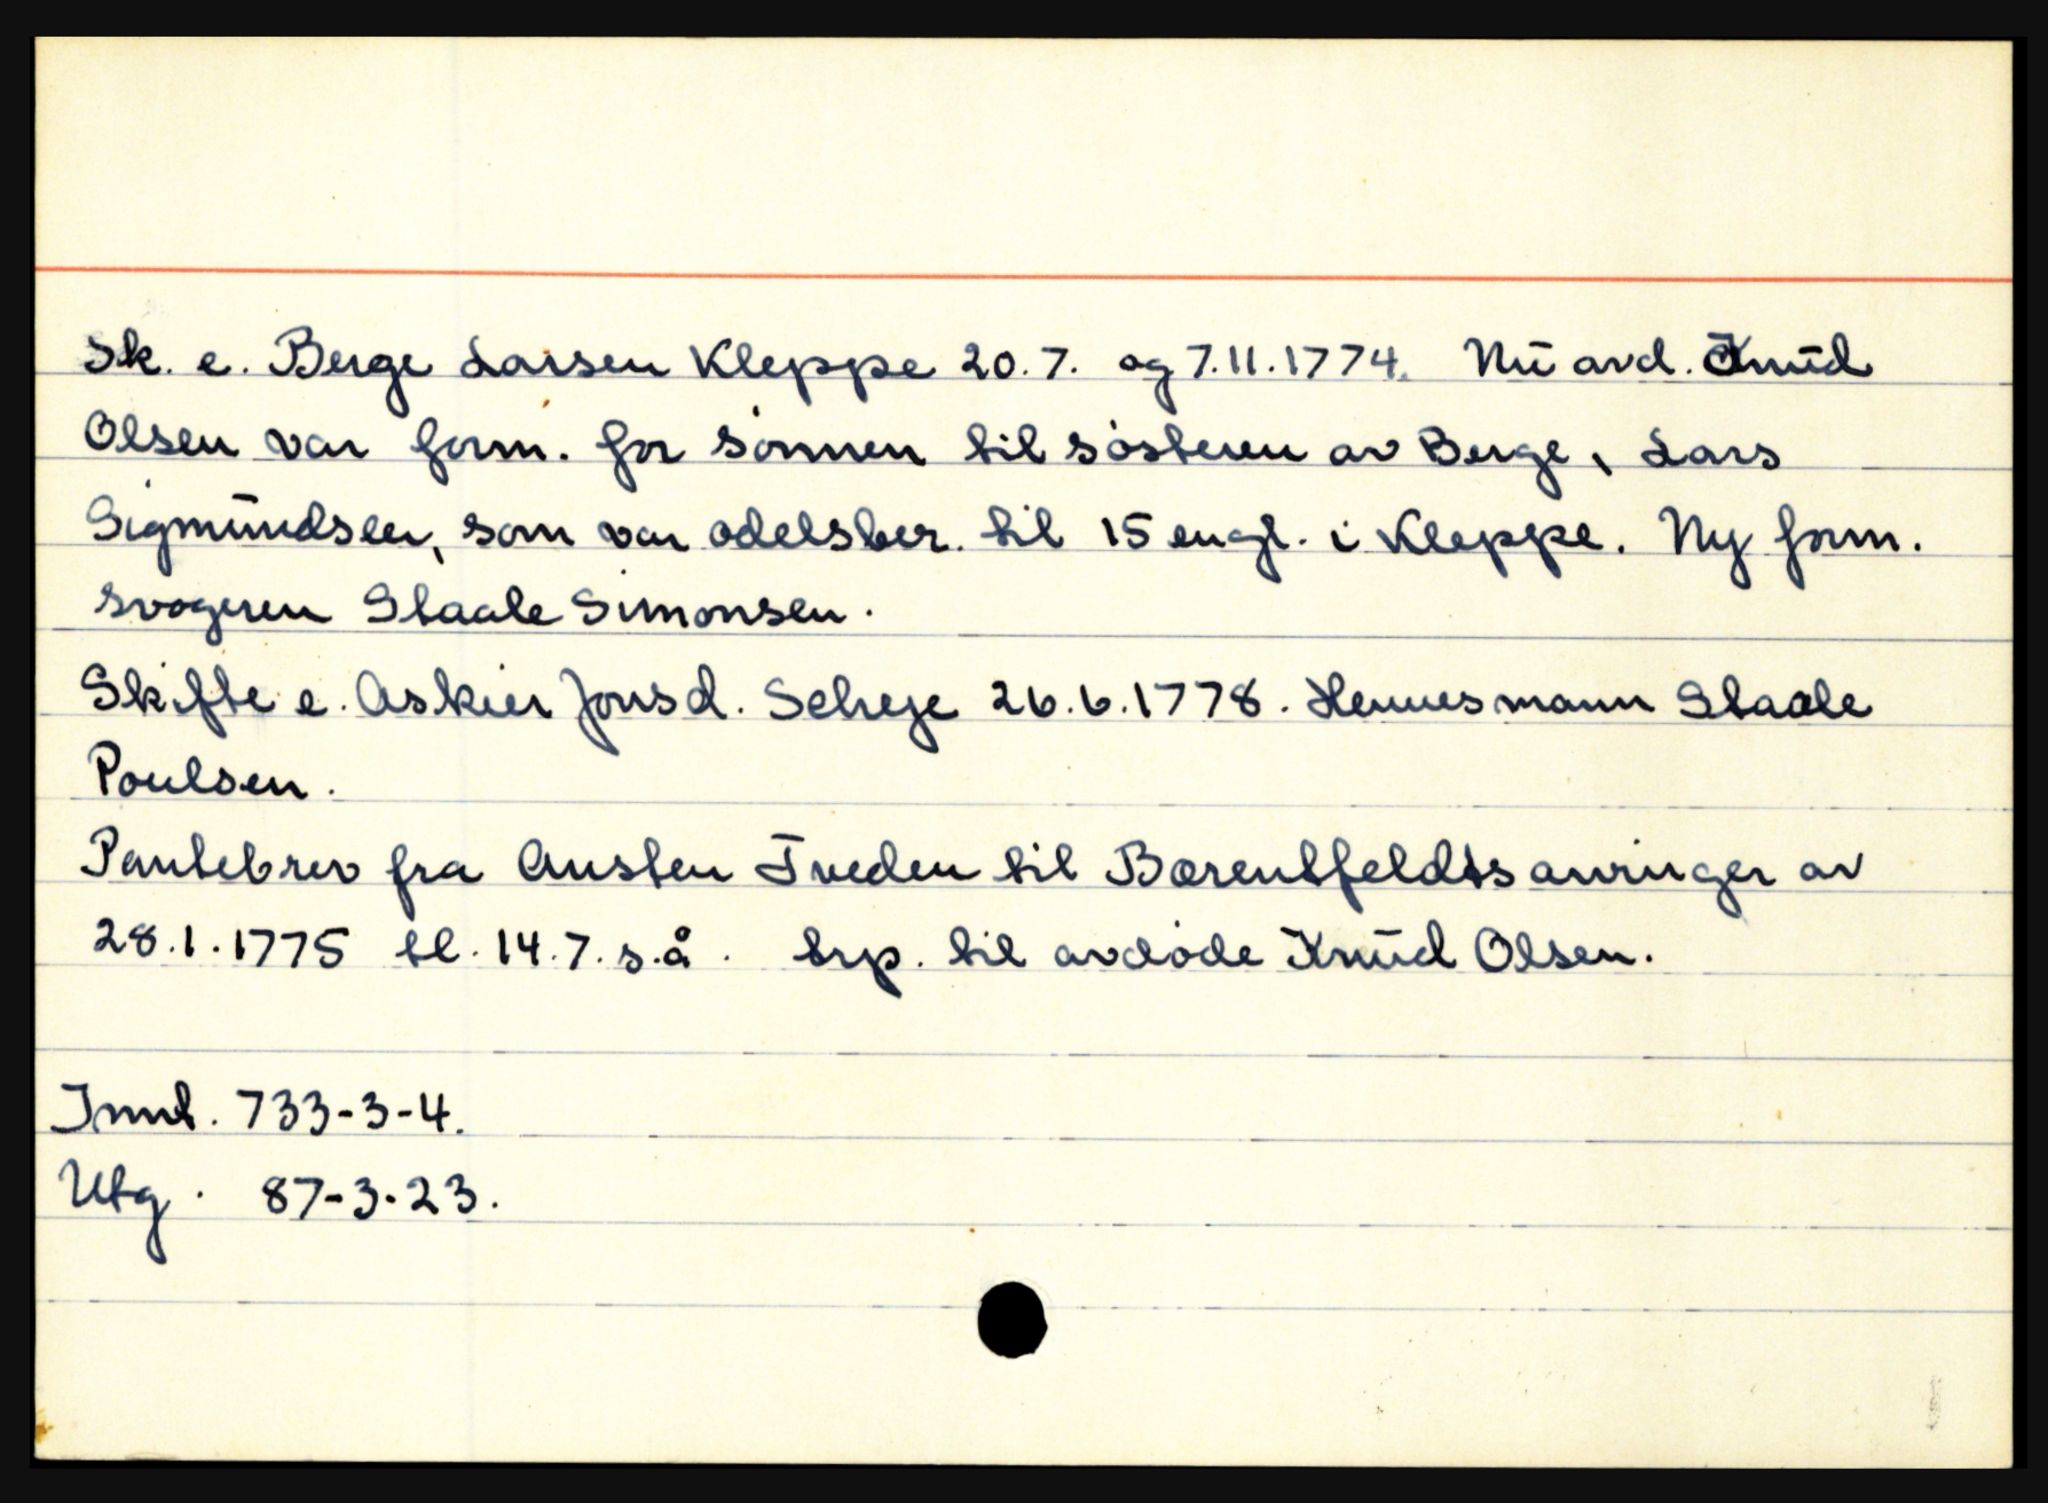 Sk. e. Berge Larsen Kleppe 20.7. og 7.11.1774. Nu avd. Knud
Olsen var form. for sønnen til søsteren av Berge, Lars
Sigmundsen, som var odelsber. til 15 engl. i Kleppe. Ny form.
svogeren Staale Simonsen.
Skifte e. Askier Jonsd. Scheje 26.6.1778. Hennes mann Staale
Poulsen.
Pantebrev fra Austen Tveden til Barentfeldts arvinger av
28.1.1775 tl. 14.7. s.å. trp. til avdøde Knud Olsen.
Innt. 733-3-4.
Utg. 87-3-23.